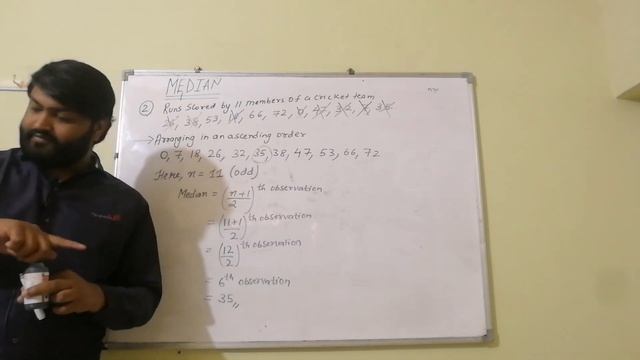 MEDIAN
② Runs Scored by 11 members of a cricket team
26, 38, 53, 18, 66, 72, 0, 47, 32, 7, 35
→ Arranging in an ascending order
0, 7, 18, 26, 32, 35, 38, 47, 53, 66, 72
Here, n = 11 (odd)
Median = (n+1/2)th observation
= (11+1/2)th observation
= (12/2)th observation
= 6th observation
= 35,,